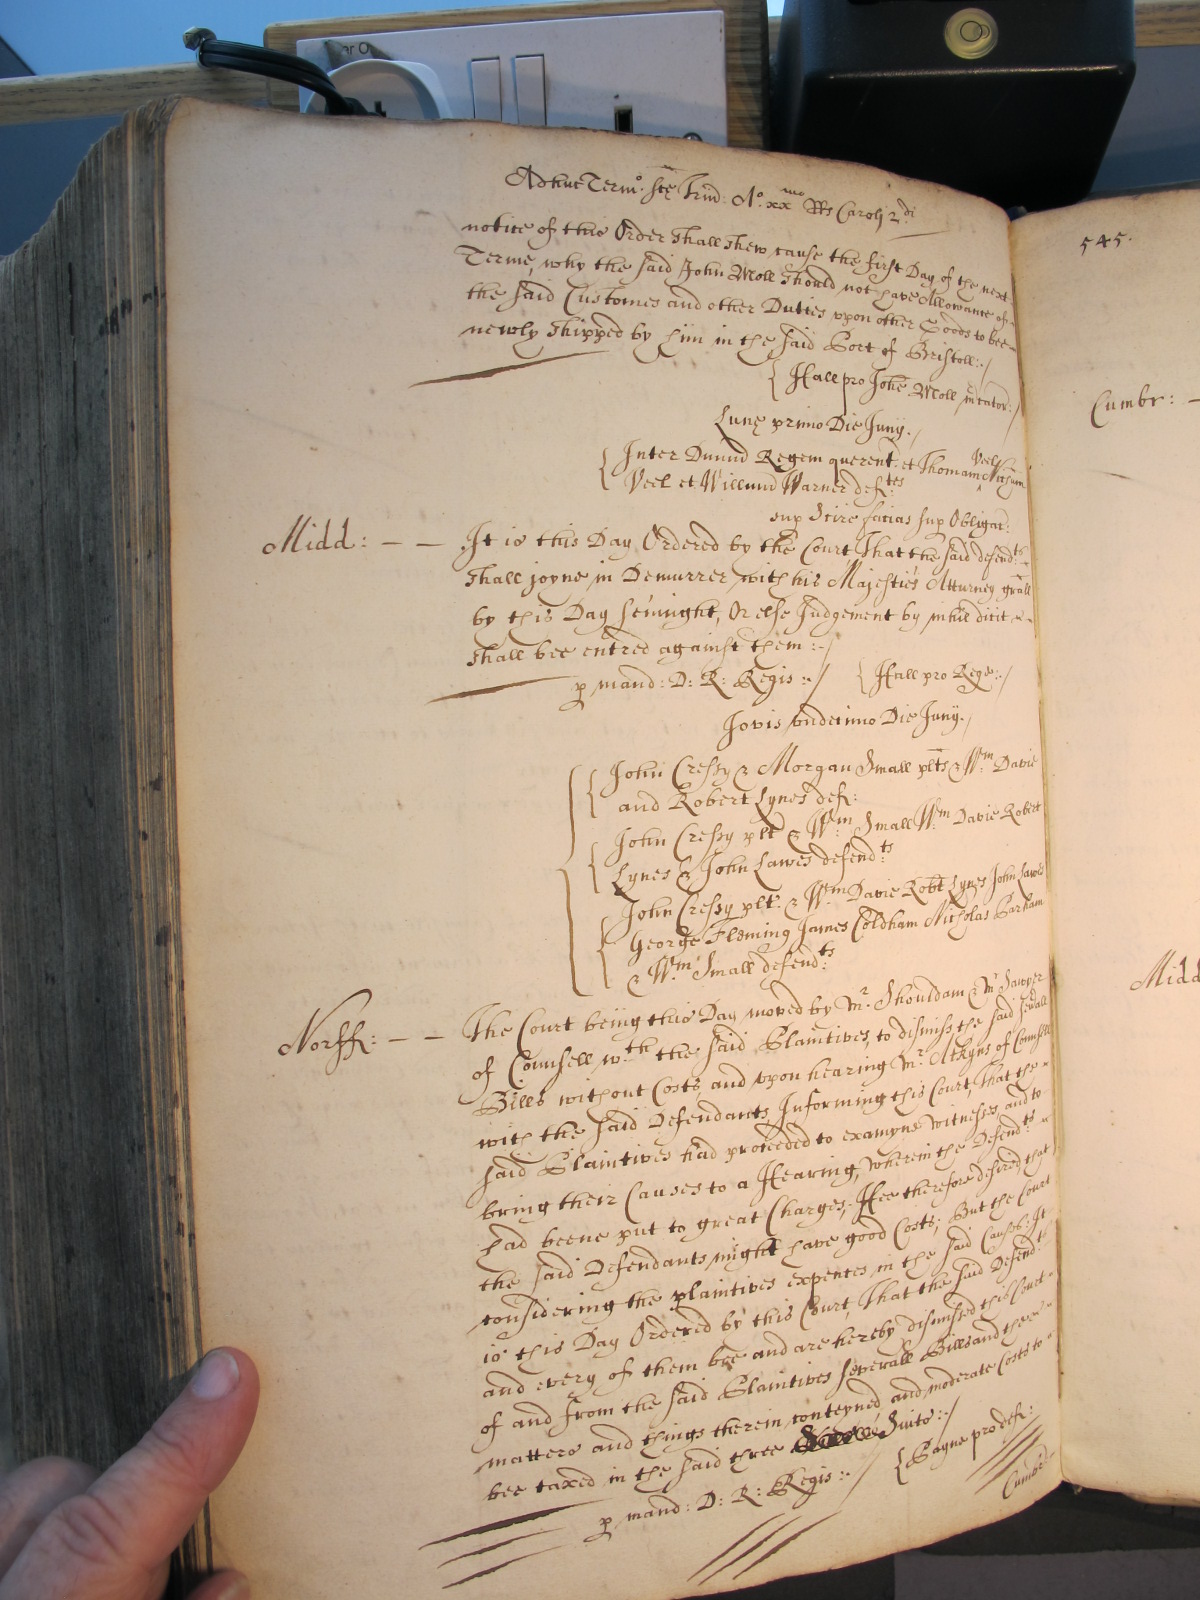 Adhuc Termo. Ste Trin: Ao. xxmo Rs Caroli 2di
notice of this Order Shall Shew cause the first Day of the next
Terme, why the said John Moll Should not have Allowance of
the said Customes and other Duties upon other Goods to bee
newly Shipped by him in the said Port of Bristoll:./
Hall pro Johe Moll mcator:/
Lune primo Die Junij./
Inter Dnum Regem querent. et Thomam
Veel et Willum Warner deftes
sup Scire facias sup Obligac:
Midd: - - It is this Day Ordered by the Court That the said defendts
Shall joyne in Demurrer with his Majesties Atturney grall
by this Day Sevnight, Or else Judgement by nihil dicit
Shall bee entred against them :-/
p mand: D: R: Regis :-/ Hall pro Rege:-/
Jovis undecimo Die Junij./
John Cressy & Morgan Small plts & Wm Davie
and Robert Lynes deft:
John Cressy plt & Wm: Small Wm Davie Robert
Lynes & John Lawes defendts
John Cressy plt: & Wm Davie Robt Lynes John Lawes
George Fleming James Coldham Nicholas Barham
& Wm Small defendts
Norff: - - The Court being this Day moved by Mr. Shouldam & Mr Sawyer
of Counsell wth the said Plaintives, to dismiss the said sevall
Bills without Costs, and upon hearing Mr. Atkyns of Counsell
with the said Defendants, Informing this Court, That the
said Plaintives had proceeded to examyne Witnesses, and to
bring their Causes to a Hearing, wherein the Defendts
had beene put to great Charges, Hee therefore desired, that
the said Defendants might have good Costs; But the Court
considering the plaintives expences in the said Causes: It
is this Day Ordered by this Court, That the said Defendts
and every of them bee and are hereby dismissed this Court
of and from the said Plaintives severall Bills and the
matters and things therein conteyned, and moderate Costs to
bee taxed in the said three Suits:-/
p mand: D: R: Regis :-/ Payne pro deft:
Cumbr:
545.
Cumbr: -
Midd